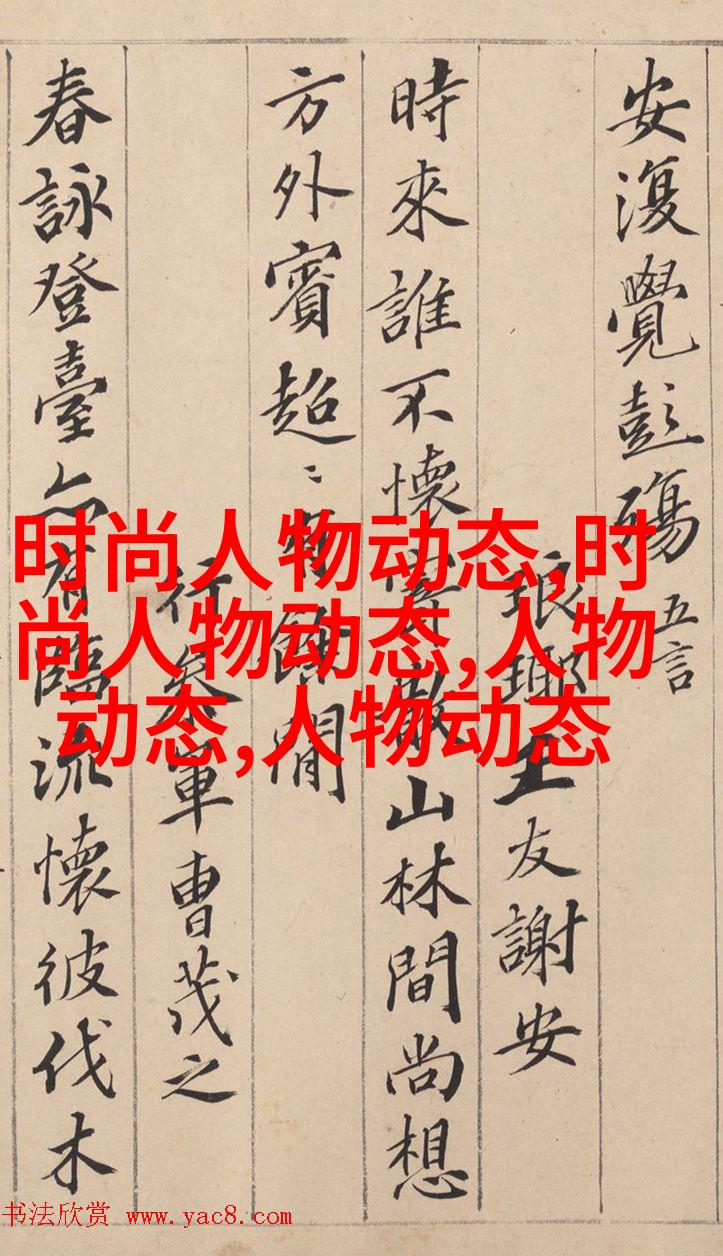 安復覺彭殤 五言
琅瑘王友謝安
時來誰不懷寄散山林間尚想
方外賓超〻餘閒
行參軍曹茂之
春詠登臺亦有臨流懷彼伐木
时尚人物动态,时
尚人物动态,人物
动态,人物动态
书法欣赏 www.yac8.com